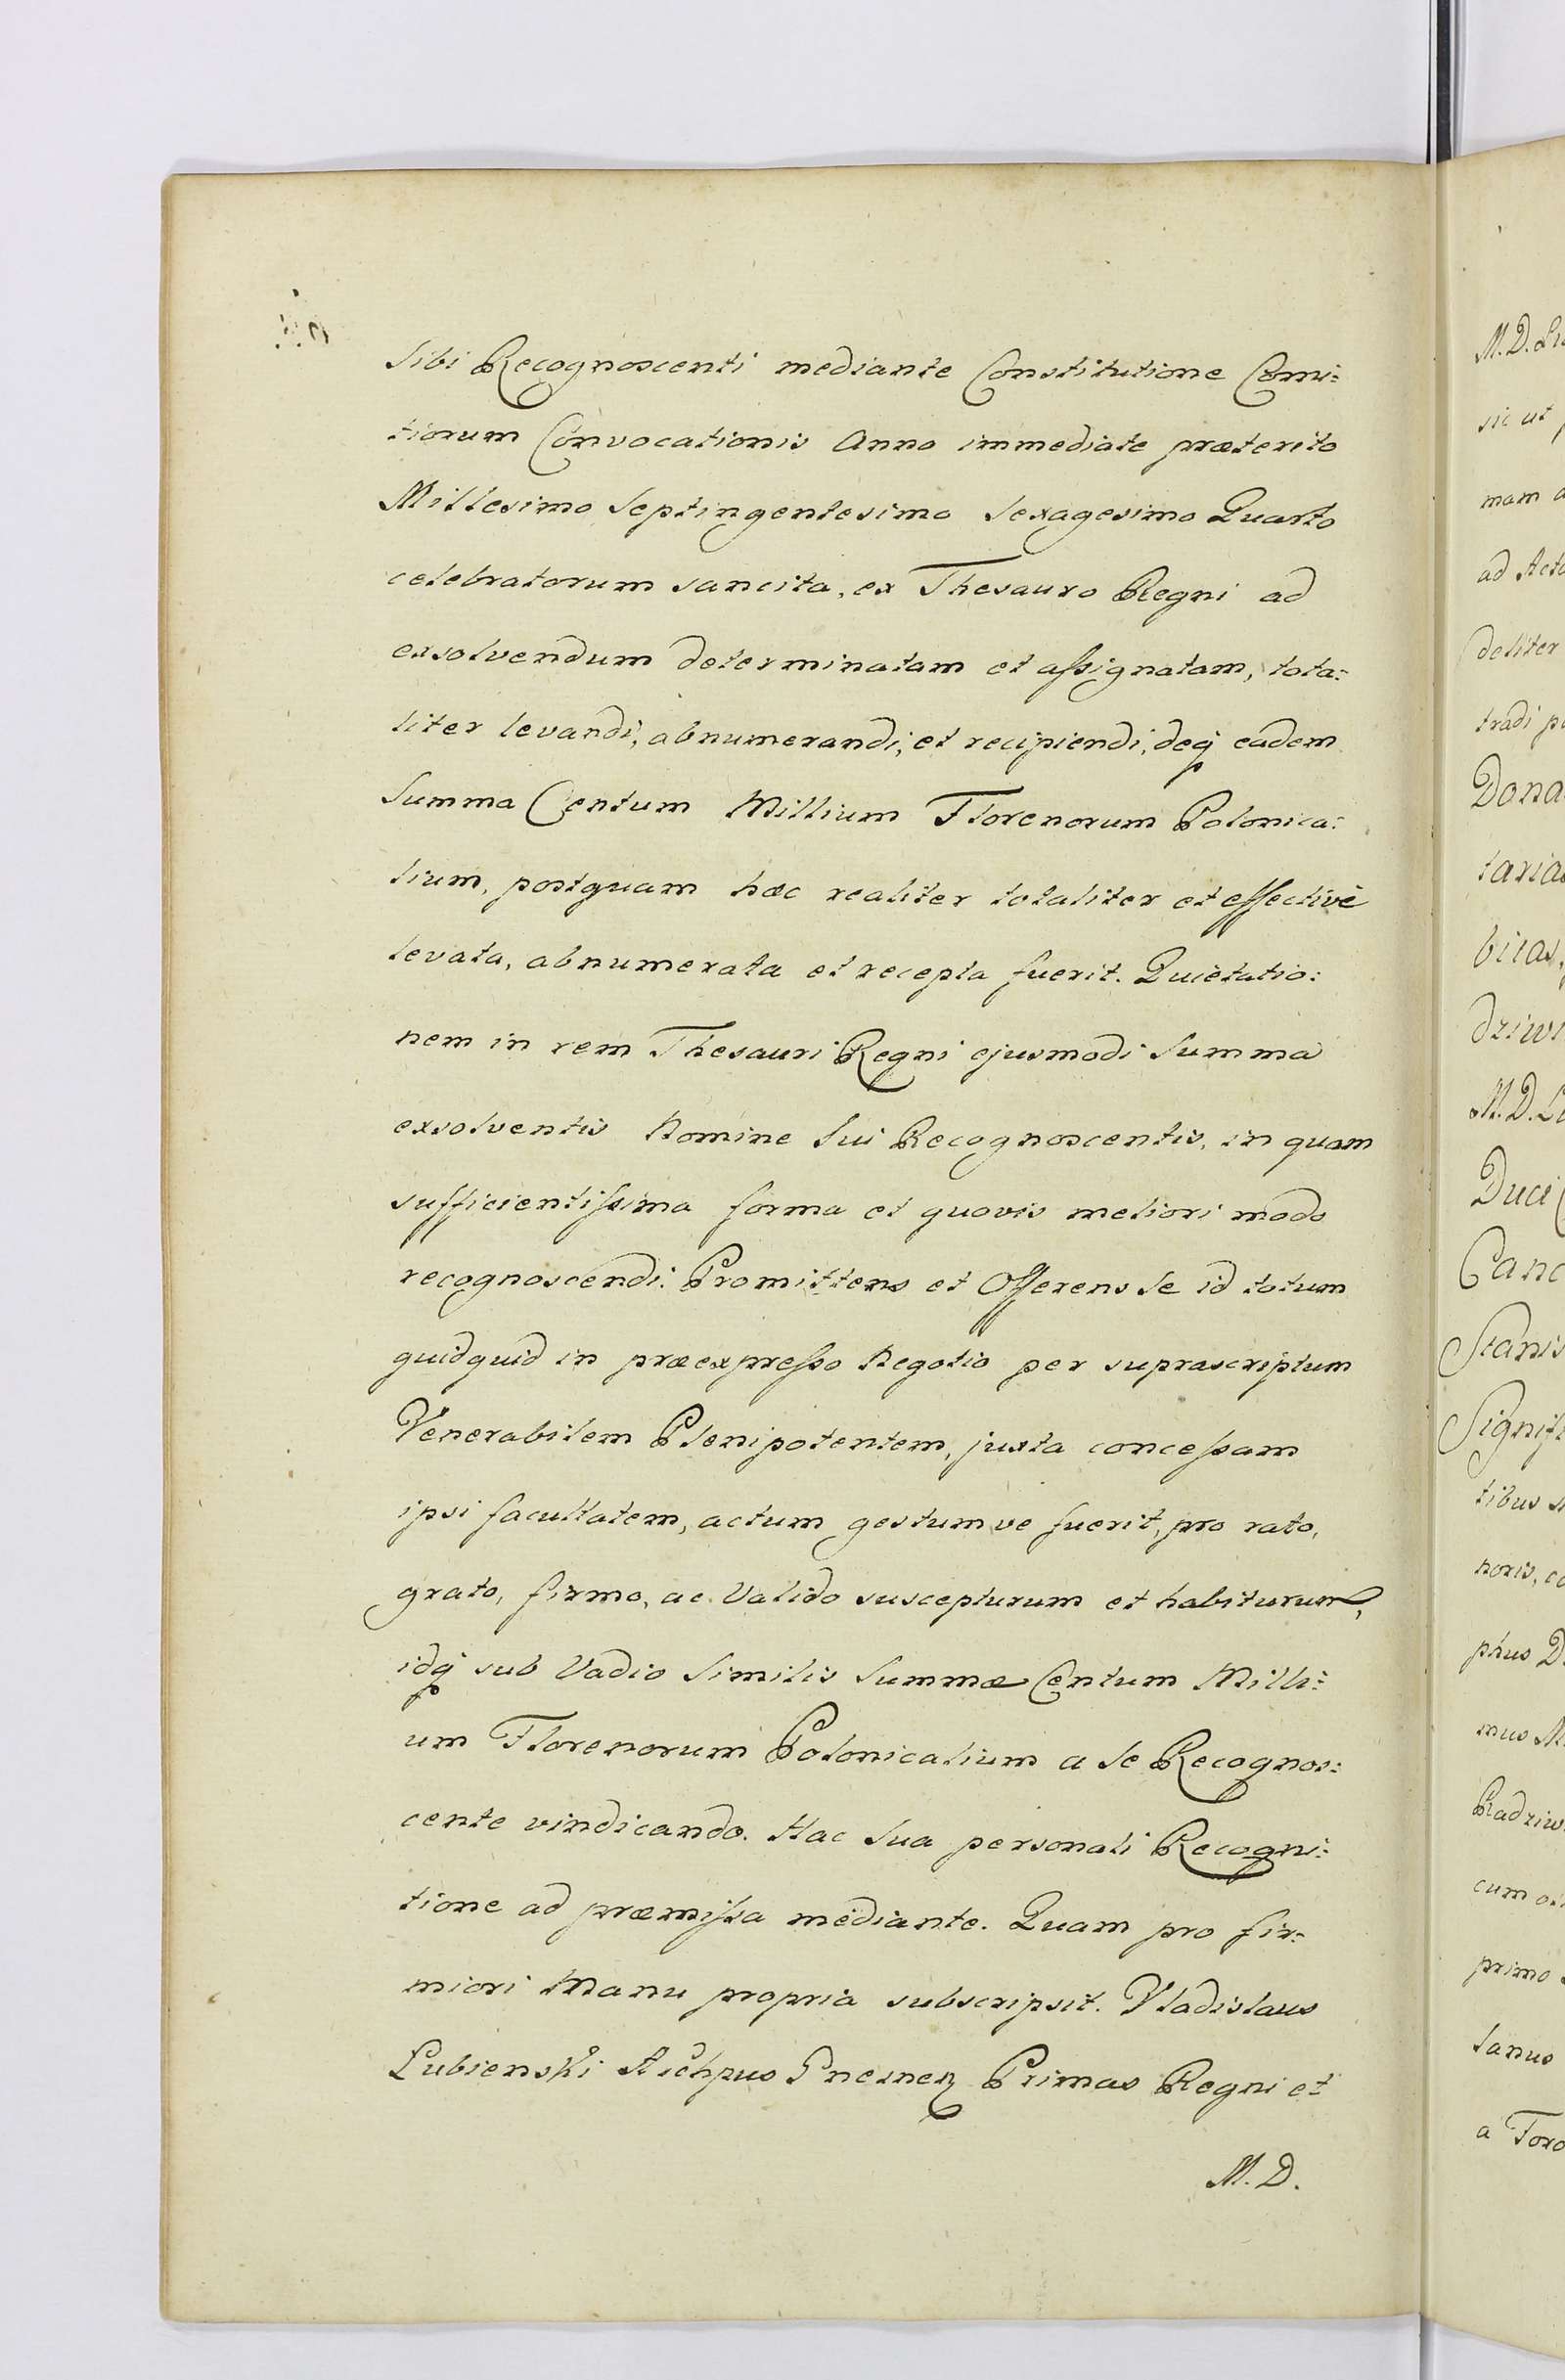 Sibi Recognoscenti mediante Constitutione Comi=
tiorum Convocationis Anno immediate præterito
Millesimo Septingentesimo Sexagesimo Quarto
celebratorum sancita, ex Thesauro Regni ad
exsolvendum determinatam et assignatam, tota=
liter levandi, abnumerandi, et recipiendi, deq eadem
Summa Centum Millium Florenorum Polonica=
lium, postquam hæc realiter totaliter et effectivè
levata, abnumerata et recepta fuerit. Quietatio=
nem in rem Thesauri Regni ejusmodi Summa
exsolventis Nomine Sui Recognoscentis, in quam
sufficientissima forma et quovis meliori modo
recognoscendi. Promittens et Offerens Se id totum
quidquid in præexpresso Negotio per suprascriptum
Venerabilem Plenipotentem, juxta concessam
ipsi facultatem, actum gestumve fuerit, pro rato,
grato, firmo, ac Valido suscepturum et habiturum,
idq sub Vadio Similis Summæ Centum Milli=
um Florenorum Polonicalium a Se Recognos=
cente vindicando. Hac Sua personali Recogni=
tione ad præmissa mediante. Quam pro fir=
miori Manu propria subscripsit. Vladislaus
Lubienski Aichpus Gnesnen Primas Regni et
M. D.
M. D.
sic ut
mam
ad Acta
deliter
tradi
Dona
taria
bitas,
dziwi
M. D.
Duci
Canc
Stanis
Signifi
tibus
noris,
phus D.
mus M.
Radziw
cum
primo
lanus
a Toro